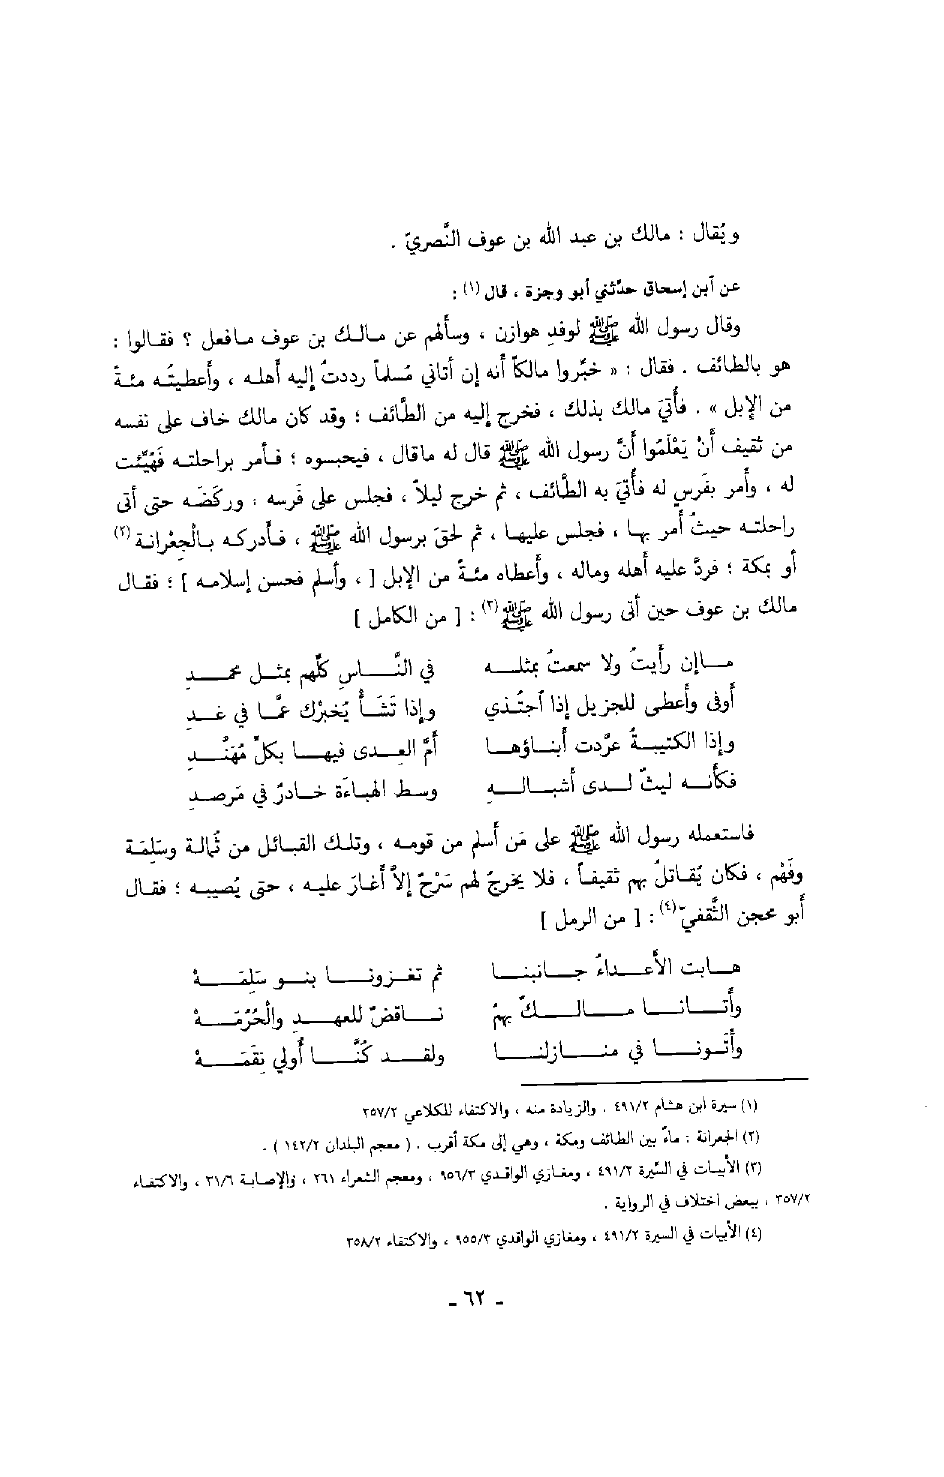 ويُقال : مالك بن عبد الله بن عوف النَّصريّ .
عن آبن إسحاق حدّثني أبو وجزة ، قال (١) :
وقال رسول الله ﷺ لوفدِ هوازن ، وسألهم عن مالك بن عوف مافعل ؟ فقالوا :
هو بالطائف . فقال : « خبِّروا مالكاً أنه إن أتاني مُسلماً رددتُ إليه أهله ، وأعطيتُه مئةً
من الإبل » . فأُتيَ مالك بذلك ، فخرج إليه من الطَّائف ؛ وقد كان مالك خاف على نفسه
من ثقيف أنْ يَعْلَمُوا أنَّ رسول الله ﷺ قال له ماقال ، فيحبسوه ؛ فأمر براحلته فهُيِّئت
له ، وأمر بفَرسٍ له فأُتيَ به الطَّائف ، ثم خرج ليلاً ، فجلس على فَرسه ، وركَضَه حتى أتى
راحلته حيثُ أمر بها ، فجلس عليها ، ثم لحقَ برسول الله ﷺ ، فأدركه بالْجِعْرانة (٢)
أو بمكة ؛ فردَّ عليه أهله وماله ، وأعطاه مئةً من الإبل [ ، وأسلم فحسن إسلامه ] ؛ فقال
مالك بن عوف حين أتى رسول الله ﷺ (٣) : [ من الكامل ]
مـاإن رأيتُ ولا سمعتُ بمثلـه في النَّـاسِ كلِّهم بمثـل محمـدِ
أوفى وأعطى للجزيل إذا آجتُدي وإذا تَشَـأْ يُخبِرْك عمّـا في غـدِ
وإذا الكتيبـةُ عرَّدت أبنـاؤهـا أمَّ العِـدى فيهـا بكلِّ مُهَنَّـدِ
فكأنـه ليثٌ لـدى أشبـالـهِ وسـط الهَبـاءَة خـادرٌ في مَرصـدِ
فاستعمله رسول الله ﷺ على مَن أسلم من قومه ، وتلك القبائل من ثُمالة وسَلِمَة
وفَهْم ، فكان يُقاتلُ بهم ثقيفاً ، فلا يخرجُ لهم سَرْحٌ إلاَّ أغارَ عليه ، حتى يُصيبه ؛ فقال
أبو محجن الثَّقفيّ (٤) : [ من الرمل ]
هـابت الأعـداءُ جـانبنـا ثم تغـزونـا بنـو سَلِمَـهْ
وأتـانـا مـالـكٌ بهمُ نـاقضٌ للعهـدِ والْحُرُمَـهْ
وأتـونـا في منـازلنـا ولقـد كُنَّـا أُولي نقمَـهْ
(١) سيرة ابن هشام ٤٩١/٢ ، والزيادة منه ، والاكتفاء للكلاعي ٣٥٧/٢
(٢) الجعرانة : ماءٌ بين الطائف ومكة ، وهي إلى مكة أقرب . ( معجم البلدان ١٤٢/٢ ) .
(٣) الأبيات في السِّيرة ٤٩١/٢ ، ومغازي الواقدي ٩٥٦/٣ ، ومعجم الشعراء ٢٦١ ، والإصابة ٣١/٦ ، والاكتفاء
٣٥٧/٢ ، ببعض اختلاف في الرواية .
(٤) الأبيات في السيرة ٤٩١/٢ ، ومغازي الواقدي ٩٥٥/٣ ، والاكتفاء ٣٥٨/٢
- ٦٢ -